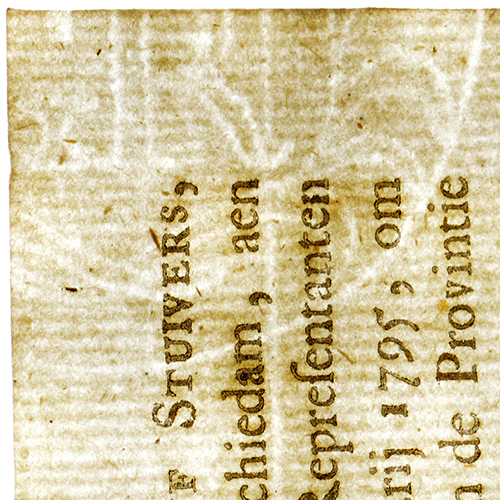 F STUIVERS,
chiedam, aen
Repreſentanten
rij 1795, om
n de Provintie